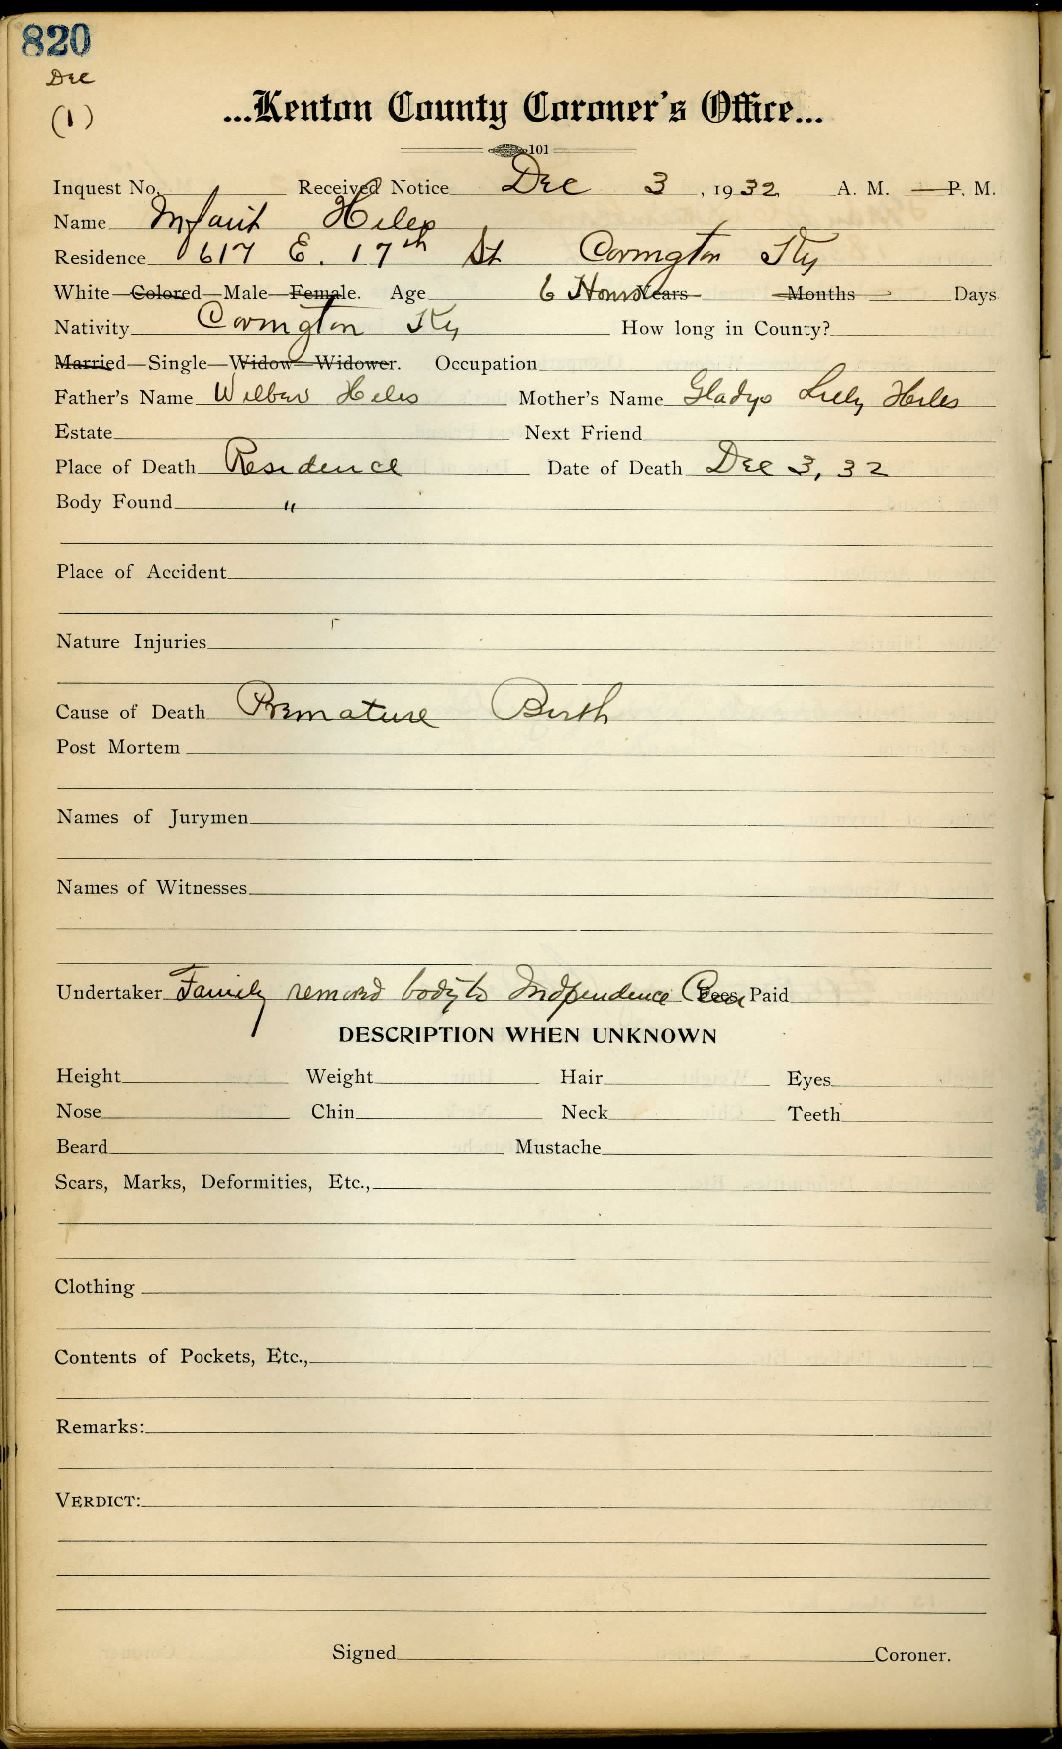 820
Dec
(1)
...Kenton County Coroner's Office...
101
Inquest No. 1 Received Notice Dec 3, 1932 A. M. — P. M.
Name Infant Hiles
Residence 617 E. 17th St Covington Ky
White—Colored—Male—Female. Age 6 Hours Years Months Days
Nativity Covington Ky How long in County?
Married—Single—Widow—Widower. Occupation
Father's Name Wilbur Hiles Mother's Name Gladys Hiles
Estate Next Friend
Place of Death Residence Date of Death Dec 3, 32
Body Found "
Place of Accident
Nature Injuries
Cause of Death Premature Birth
Post Mortem
Names of Jurymen
Names of Witnesses
Undertaker Family removed body to Independence Cem Fees Paid
DESCRIPTION WHEN UNKNOWN
Height Weight Hair Eyes
Nose Chin Neck Teeth
Beard Mustache
Scars, Marks, Deformities, Etc.,
Clothing
Contents of Pockets, Etc.,
Remarks:
VERDICT:
Signed Coroner.